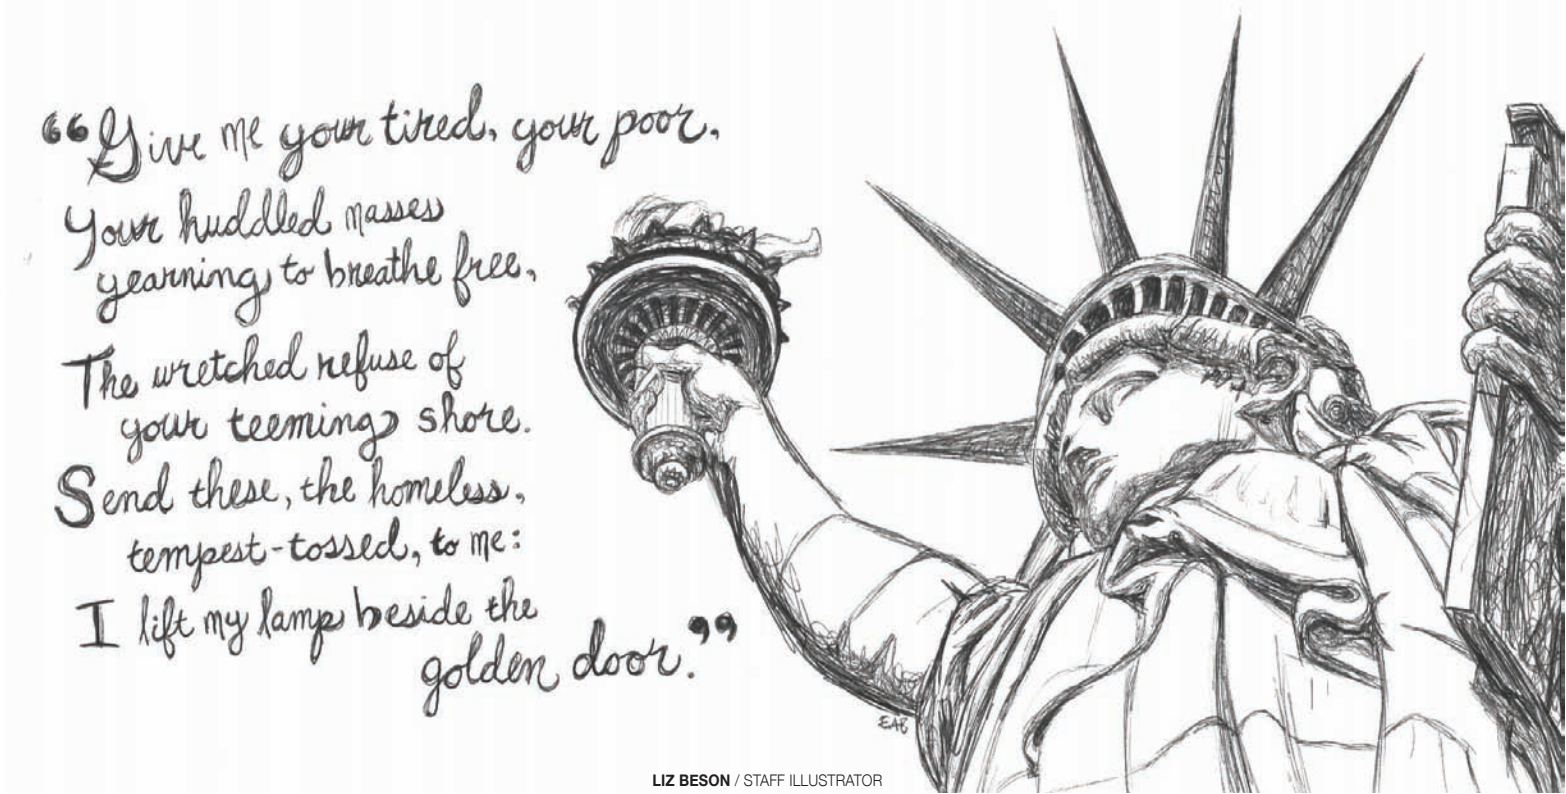 “Give me your tired, your poor,
Your huddled masses
yearning to breathe free,
The wretched refuse of
your teeming shore.
Send these, the homeless,
tempest-tossed, to me:
I lift my lamp beside the
golden door.”
EAB
LIZ BESON / STAFF ILLUSTRATOR